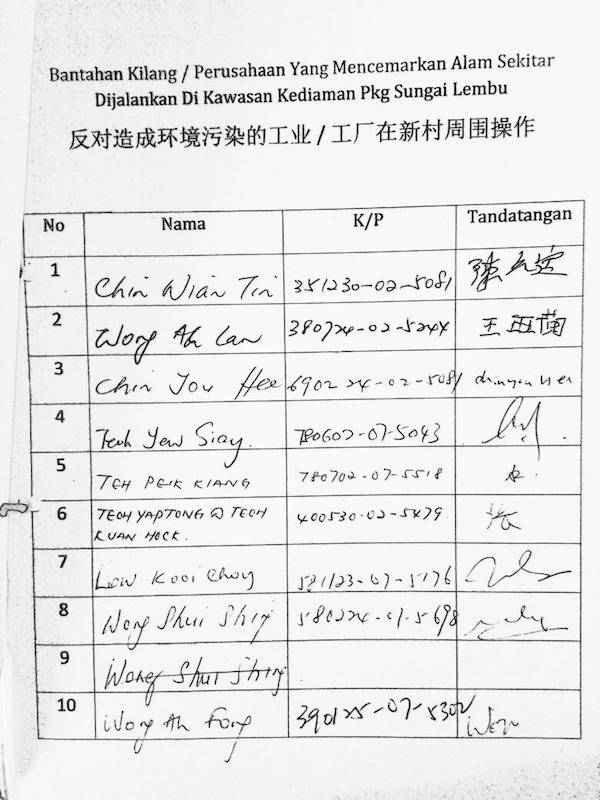 Bantahan Kilang / Perusahaan Yang Mencemarkan Alam Sekitar
Dijalankan Di Kawasan Kediaman Pkg Sungai Lembu
反对造成环境污染的工业 / 工厂在新村周围操作
No Nama K/P Tandatangan
1 Chin Wian Tin 351230-02-5081
2 Wong Ah Lan 380724-02-5244 王亚兰
3 Chin You Hee 690224-02-5081
4 Teoh Yew Siay. 780602-07-5043
5 TEH PEIK KIANG 780702-07-5518
6 TEOH YAPTONG @ TEOH 400530-02-5479
KUAN HOCK.
7 Low Kooi Choy 581123-07-5176
8 Wong Shui Shiy 580224-07-5698
9 Wong Shui Shiy
10 Wong Ah Fong 390125-07-5302 Won